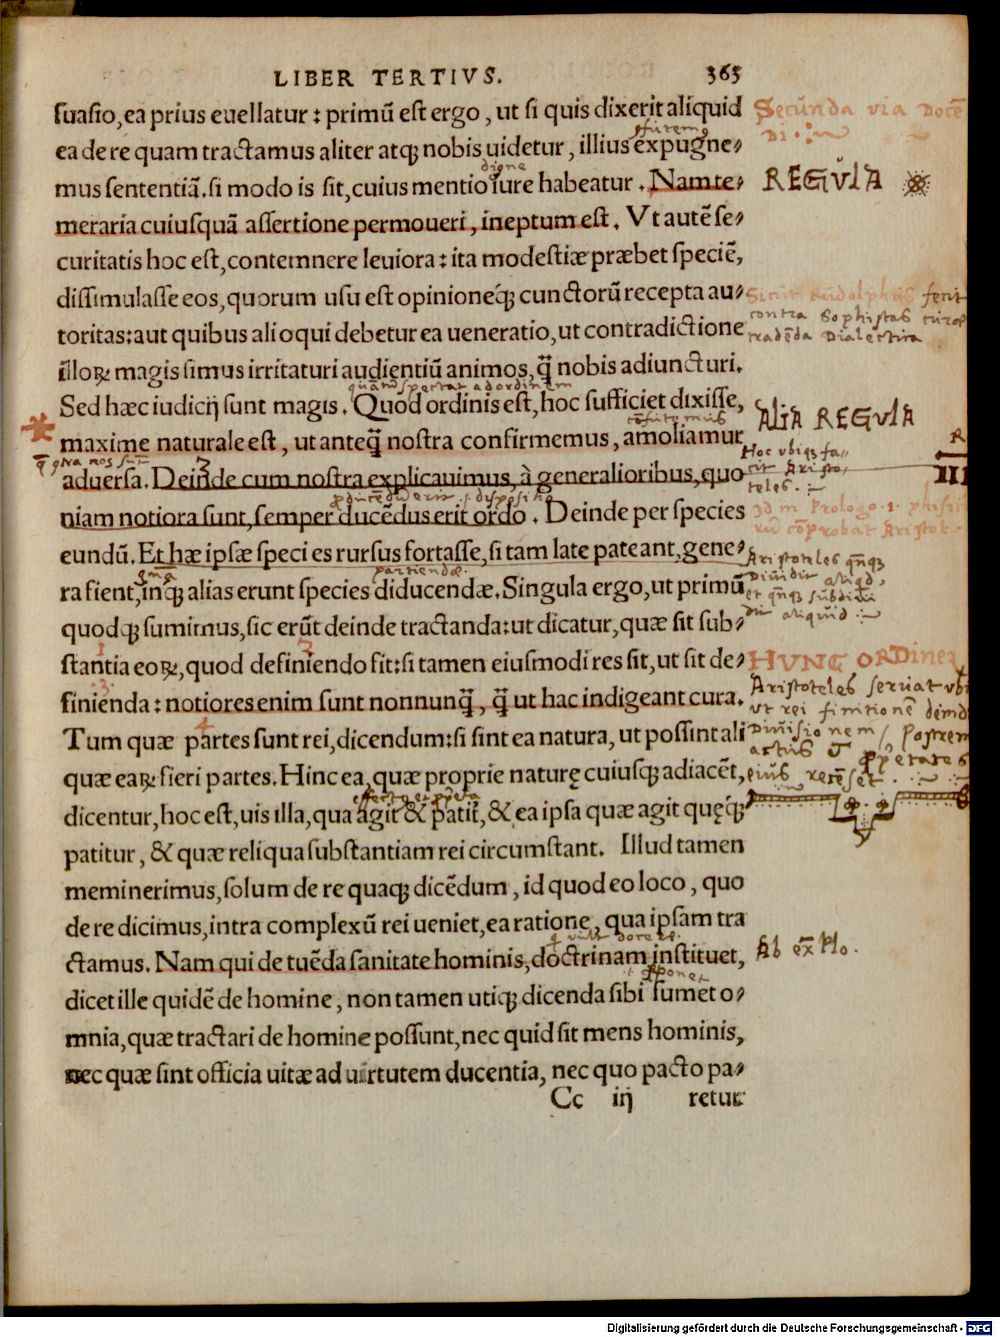 LIBER TERTIVS. 365
suasio, ea prius euellatur : primū est ergo , ut si quis dixerit aliquid
ea de re quam tractamus aliter atq; nobis uidetur , illius expugne⸗
mus sententiā. si modo is sit, cuius mentio iure habeatur . Nam te⸗
meraria cuiusquā assertione permoueri, ineptum est . Vt autē se⸗
curitatis hoc est, contemnere leuiora : ita modestiæ præbet speciē,
dissimulasse eos, quorum usu est opinioneq́; cunctorū recepta au⸗
toritas: aut quibus alioqui debetur ea ueneratio, ut contradictione
illoꝝ magis simus irritaturi audientiū animos, q̄̃ nobis adiuncturi.
Sed hæc iudicij sunt magis . Quod ordinis est, hoc sufficiet dixisse,
maxime naturale est , ut anteq̄̃ nostra confirmemus , amoliamur
aduersa. Deinde cum nostra explicauimus, à generalioribus, quo
niam notiora sunt, semper ducēdus erit ordo . Deinde per species
eundū. Et hæ ipsæ species rursus fortasse, si tam late pateant, gene⸗
ra fient, inq; alias erunt species diducendæ. Singula ergo, ut primū
quodq; sumimus, sic erūt deinde tractanda: ut dicatur, quæ sit sub⸗
stantia eoꝝ, quod definiendo fit: si tamen eiusmodi res sit, ut sit de⸗
finienda : notiores enim sunt nonnunq̄̃ , q̄̃ ut hac indigeant cura.
Tum quæ partes sunt rei, dicendum: si sint ea natura, ut possint ali
quæ eaꝝ fieri partes. Hinc ea, quæ proprie naturę cuiusq; adiacēt,
dicentur, hoc est, uis illa, qua agit & patit̃, & ea ipsa quæ agit quęq́;
patitur , & quæ reliqua substantiam rei circumstant. Illud tamen
meminerimus, solum de re quaq; dicēdum , id quod eo loco , quo
de re dicimus, intra complexū rei ueniet, ea ratione, qua ipsam tra
ctamus. Nam qui de tuēda sanitate hominis, doctrinam instituet,
dicet ille quidē de homine , non tamen utiq; dicenda sibi sumet o⸗
mnia, quæ tractari de homine possunt, nec quid sit mens hominis,
nec quæ sint officia uitæ ad uirtutem ducentia, nec quo pacto pa⸗
Cc iij retur
Secūnda via Docē
Di
REGVlA
contra Sophistas
tradēda Dialectica
AliA REGVlA
Hoc vbiq; fa⸗
cit Aristo⸗
teles.
III
Prologo 1 phisic
cōprobat Aristot
Aristoteles
HVNC ORDinez
Aristoteles seruat vbi
vt rei finitionē deinde
Diuisionem / postrem
eius recēset.
Ab exēplo.
Digitalisierung gefördert durch die Deutsche Forschungsgemeinschaft - DFG